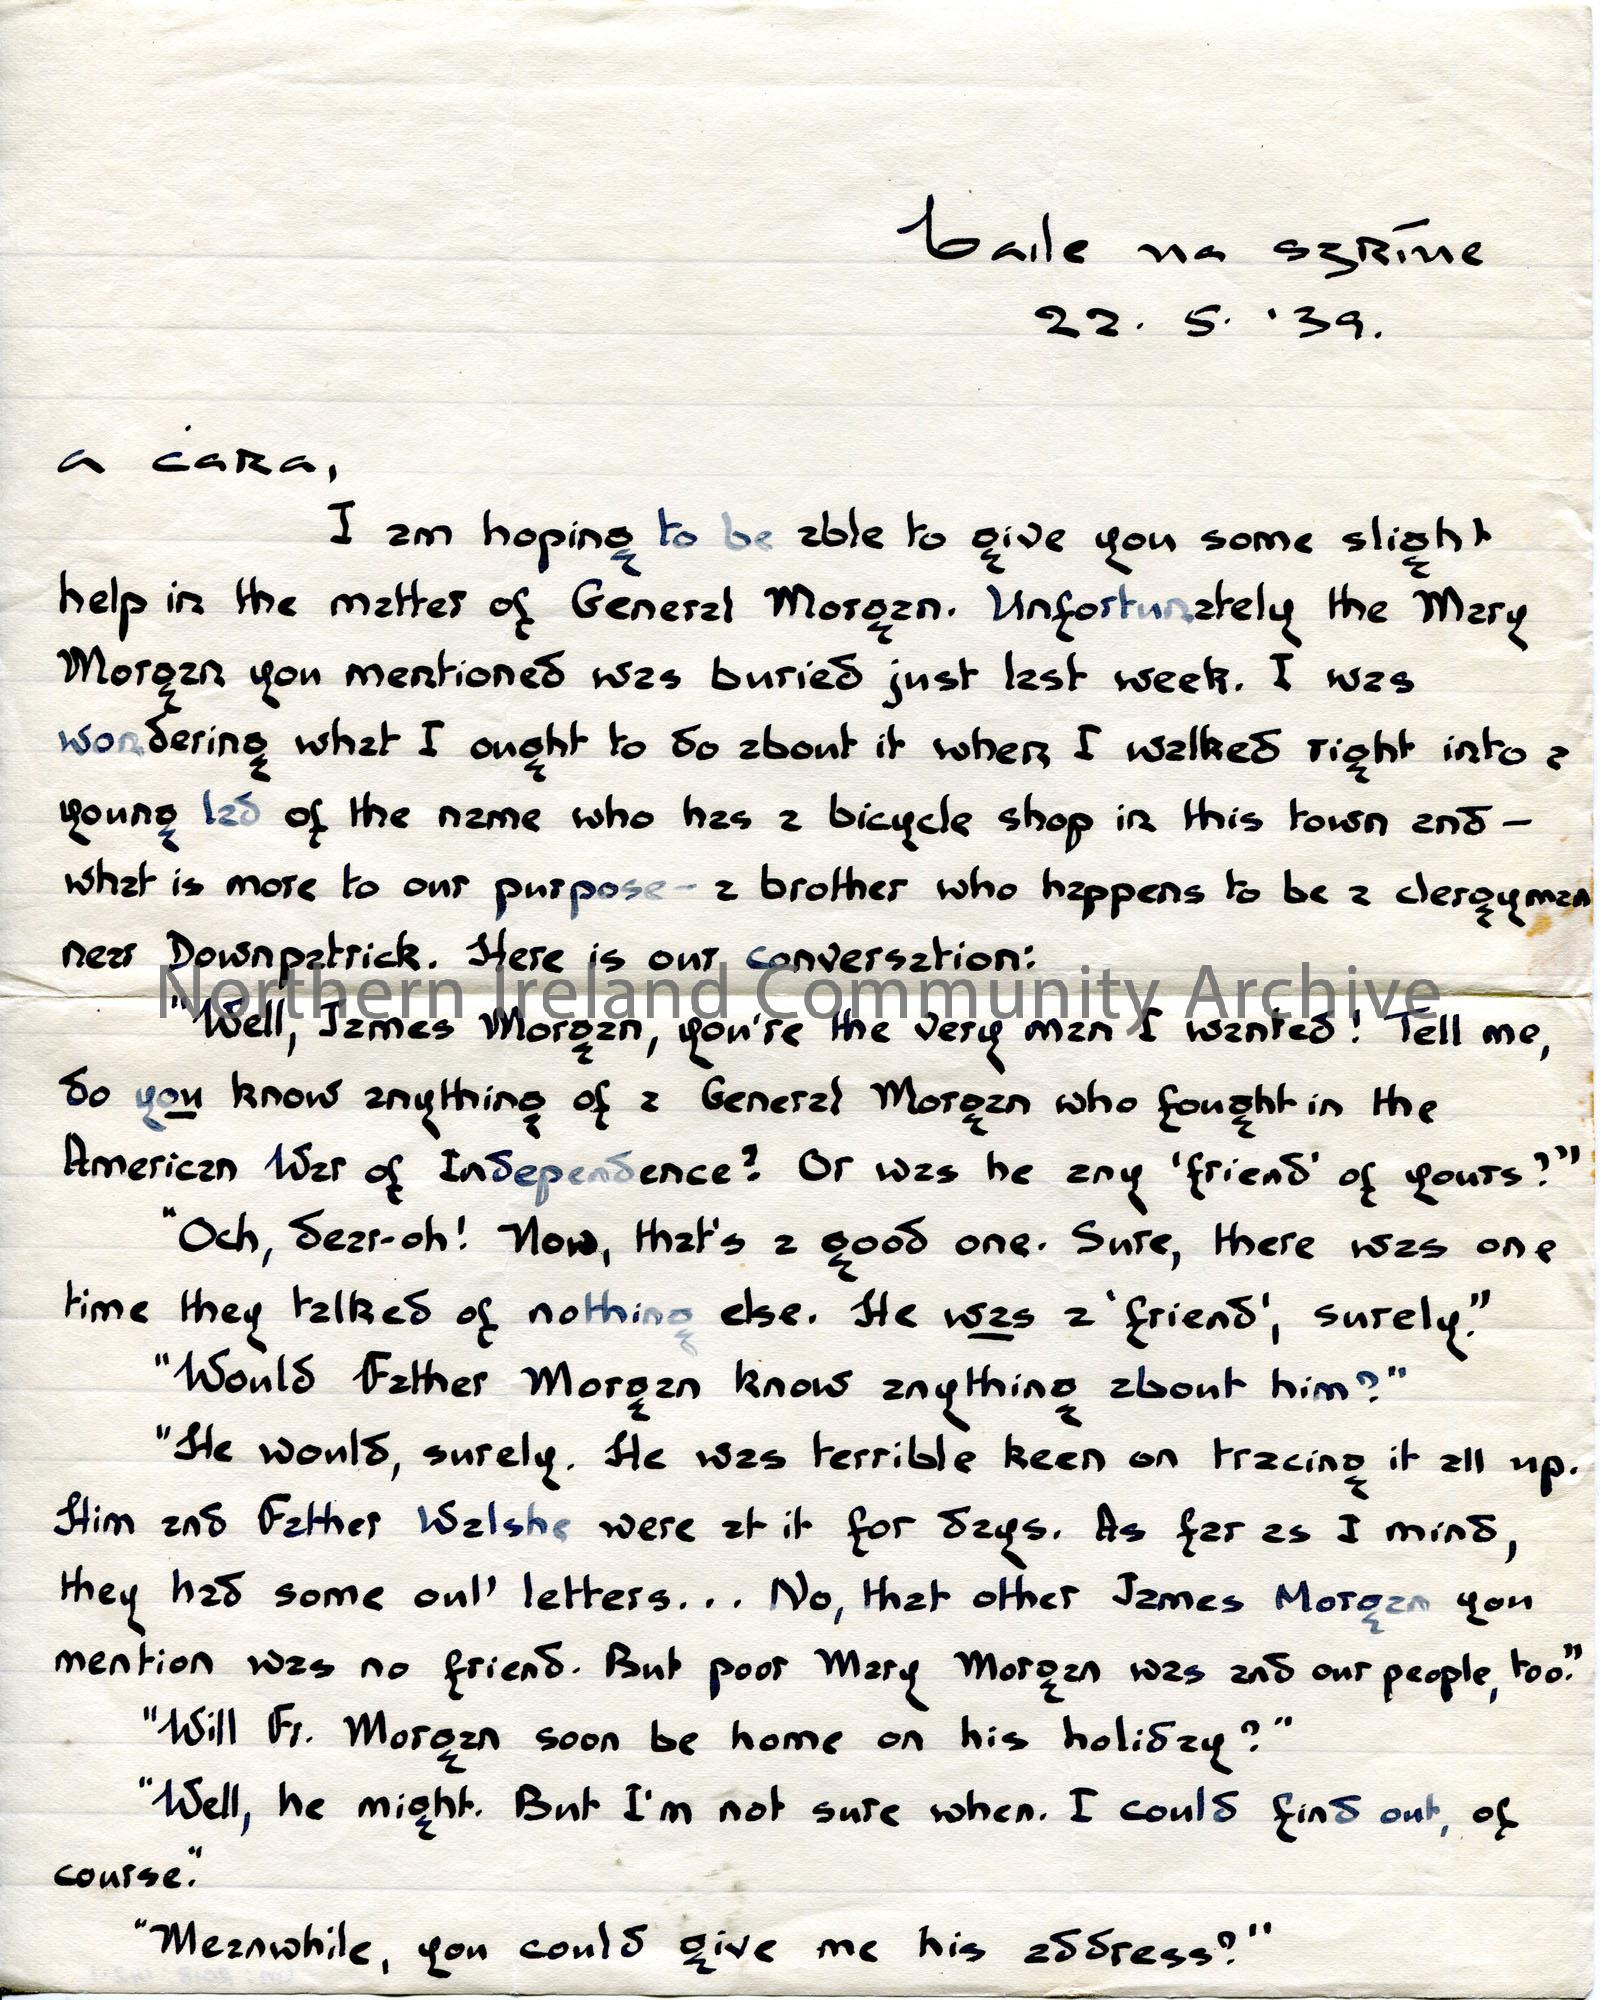 Baile na sgríne
22. 5. '39.
a ċara,
I am hoping to be able to give you some slight
help in the matter of General Morgan. Unfortunately the Mary
Morgan you mentioned was buried just last week. I was
wondering what I ought to do about it when I walked right into a
young lad of the name who has a bicycle shop in this town and –
what is more to our purpose – a brother who happens to be a clergyman
near Downpatrick. Here is our conversation:
Northern Ireland Community Archive
"Well, James Morgan, you're the very man I wanted! Tell me,
do you know anything of a General Morgan who fought in the
American War of Independence? Or was he any 'friend' of yours?"
"Och, dear-oh! Now, that's a good one. Sure, there was one
time they talked of nothing else. He was a 'friend', surely."
"Would Father Morgan know anything about him?"
"He would, surely. He was terrible keen on tracing it all up.
Him and Father Walshe were at it for days. As far as I mind,
they had some oul' letters... No, that other James Morgan you
mention was no friend. But poor Mary Morgan was and our people, too."
"Will Fr. Morgan soon be home on his holiday?"
"Well, he might. But I'm not sure when. I could find out, of
course."
"Meanwhile, you could give me his address?"